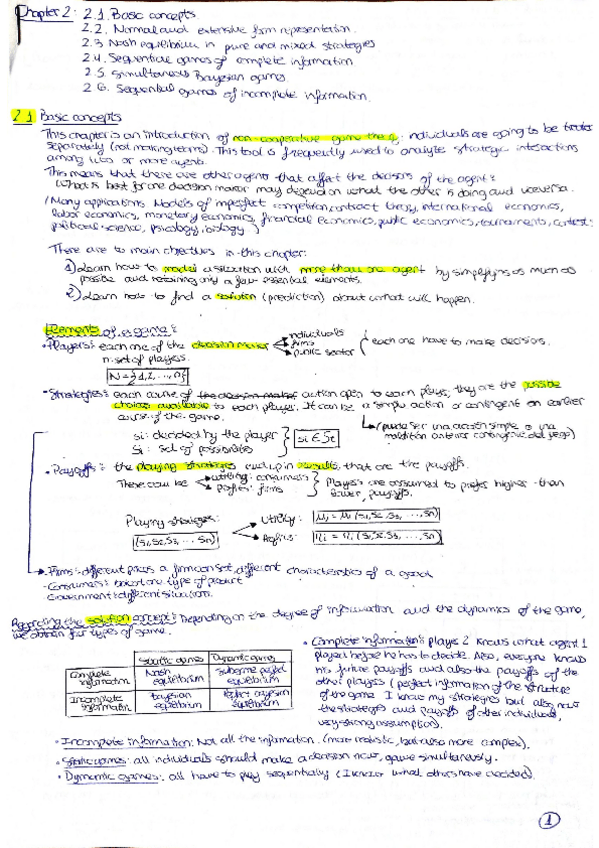 Chapter 2: 2.1. Basic concepts
2.2. Normal and extensive form representation.
2.3 Nash equilibrium in pure and mixed strategies
2.4. Sequential games of complete information
2.5. Simultaneous Bayesian games
2.6. Sequential games of incomplete information.
2.1 Basic concepts
This chapter is an introduction of non-cooperative game theory: individuals are going to be treated
separately (not making teams). This tool is frequently used to analyze strategic interactions
among two or more agents.
This means that there are other agents that affect the decisions of the agents:
(what is best for one decision maker may depend on what the other is doing and viceversa.
(Many applications: Models of imperfect competition, contract theory, international economics,
labor economics, monetary economics, financial economics, public economics, tournaments, contests:
political science, psicology, biology)
There are to main objectives in this chapter:
1) Learn how to model a situation with more than one agent by simplifying as much as
possible and retaining only a few essential elements.
2) Learn how to find a solution (prediction) about what will happen.
Elements of a game:
• Players: each one of the decision maker individuals firms public sector each one have to make decisions.
n: set of players.
N = {1, 2, ..., n}
• Strategies: each course of the decision maker action open to each player, they are the possible
choices available to each player. It can be a simple action or contingent on earlier
course of the game.
(puede ser una acción simple o una
anterior contingente del juego)
si: decided by the player
Si: set of possibilities
si ∈ Si
• Payoffs: the playing strategies end up in results, that are the payoffs.
These could be utility: consumers profits: firms Players are assumed to prefer higher than
lower payoffs.
Playing strategies: Utility: Ui = Ui (S1, S2, S3, ... Sn)
(S1, S2, S3, ... Sn) Profits: Πi = Πi (S1, S2, S3, ... Sn)
Firms: different prices a firm can set, different characteristics of a good.
- Consumers: one type of product
Government: different situations.
Regarding the solution concept: Depending on the degree of information and the dynamics of the game,
we obtain four types of game.
Static games Dynamic games
Complete information Nash equilibrium Subgame perfect equilibrium
Incomplete information Bayesian equilibrium Perfect bayesian equilibrium
• Complete information: player 2 knows what agent 1
played before he has to decide. Also, everyone knows
his future payoffs and also the payoffs of the
other players (perfect information of the structure
of the game I know my strategies but also now
the strategies and payoffs of other individuals,
very strong assumption).
• Incomplete information: Not all the information. (more realistic, but also more complex).
• Static games: all individuals should make a decision now, game simultaneously.
• Dynamic games: all have to play sequentially (I know what others have decided).
1